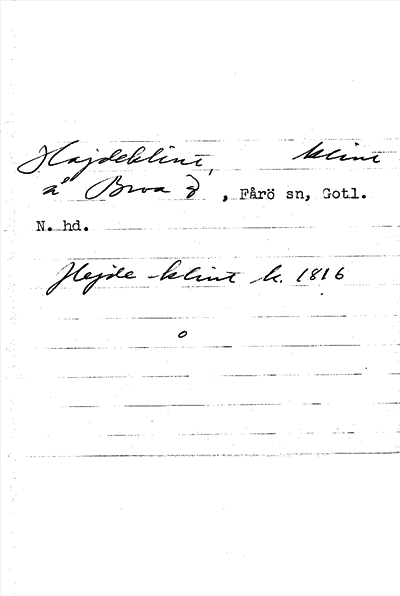 Hajdeklint, klint
å Broa , Fårö sn, Gotl.
N. hd.
Hejde klint k. 1816
o